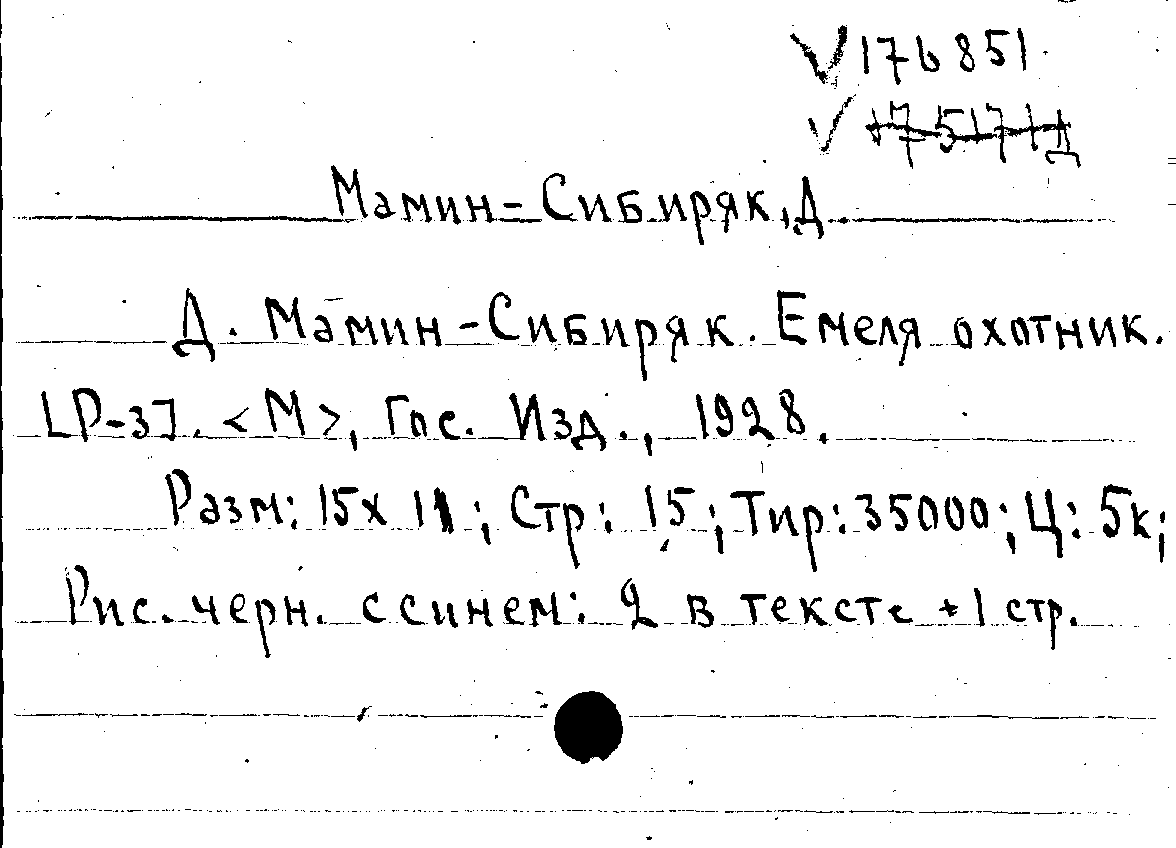 √176851
√ 175171Д
Мамин=Сибиряк, Д.
Д. Мамин-Сибиряк. Емеля охотник.
[Р-з]. <М>, Гос. Изд., 1928.
Разм: 15х11; Стр: 15; Тир: 35000; Ц: 5к;
Рис. черн. с синем: 2 в тексте + 1 стр.